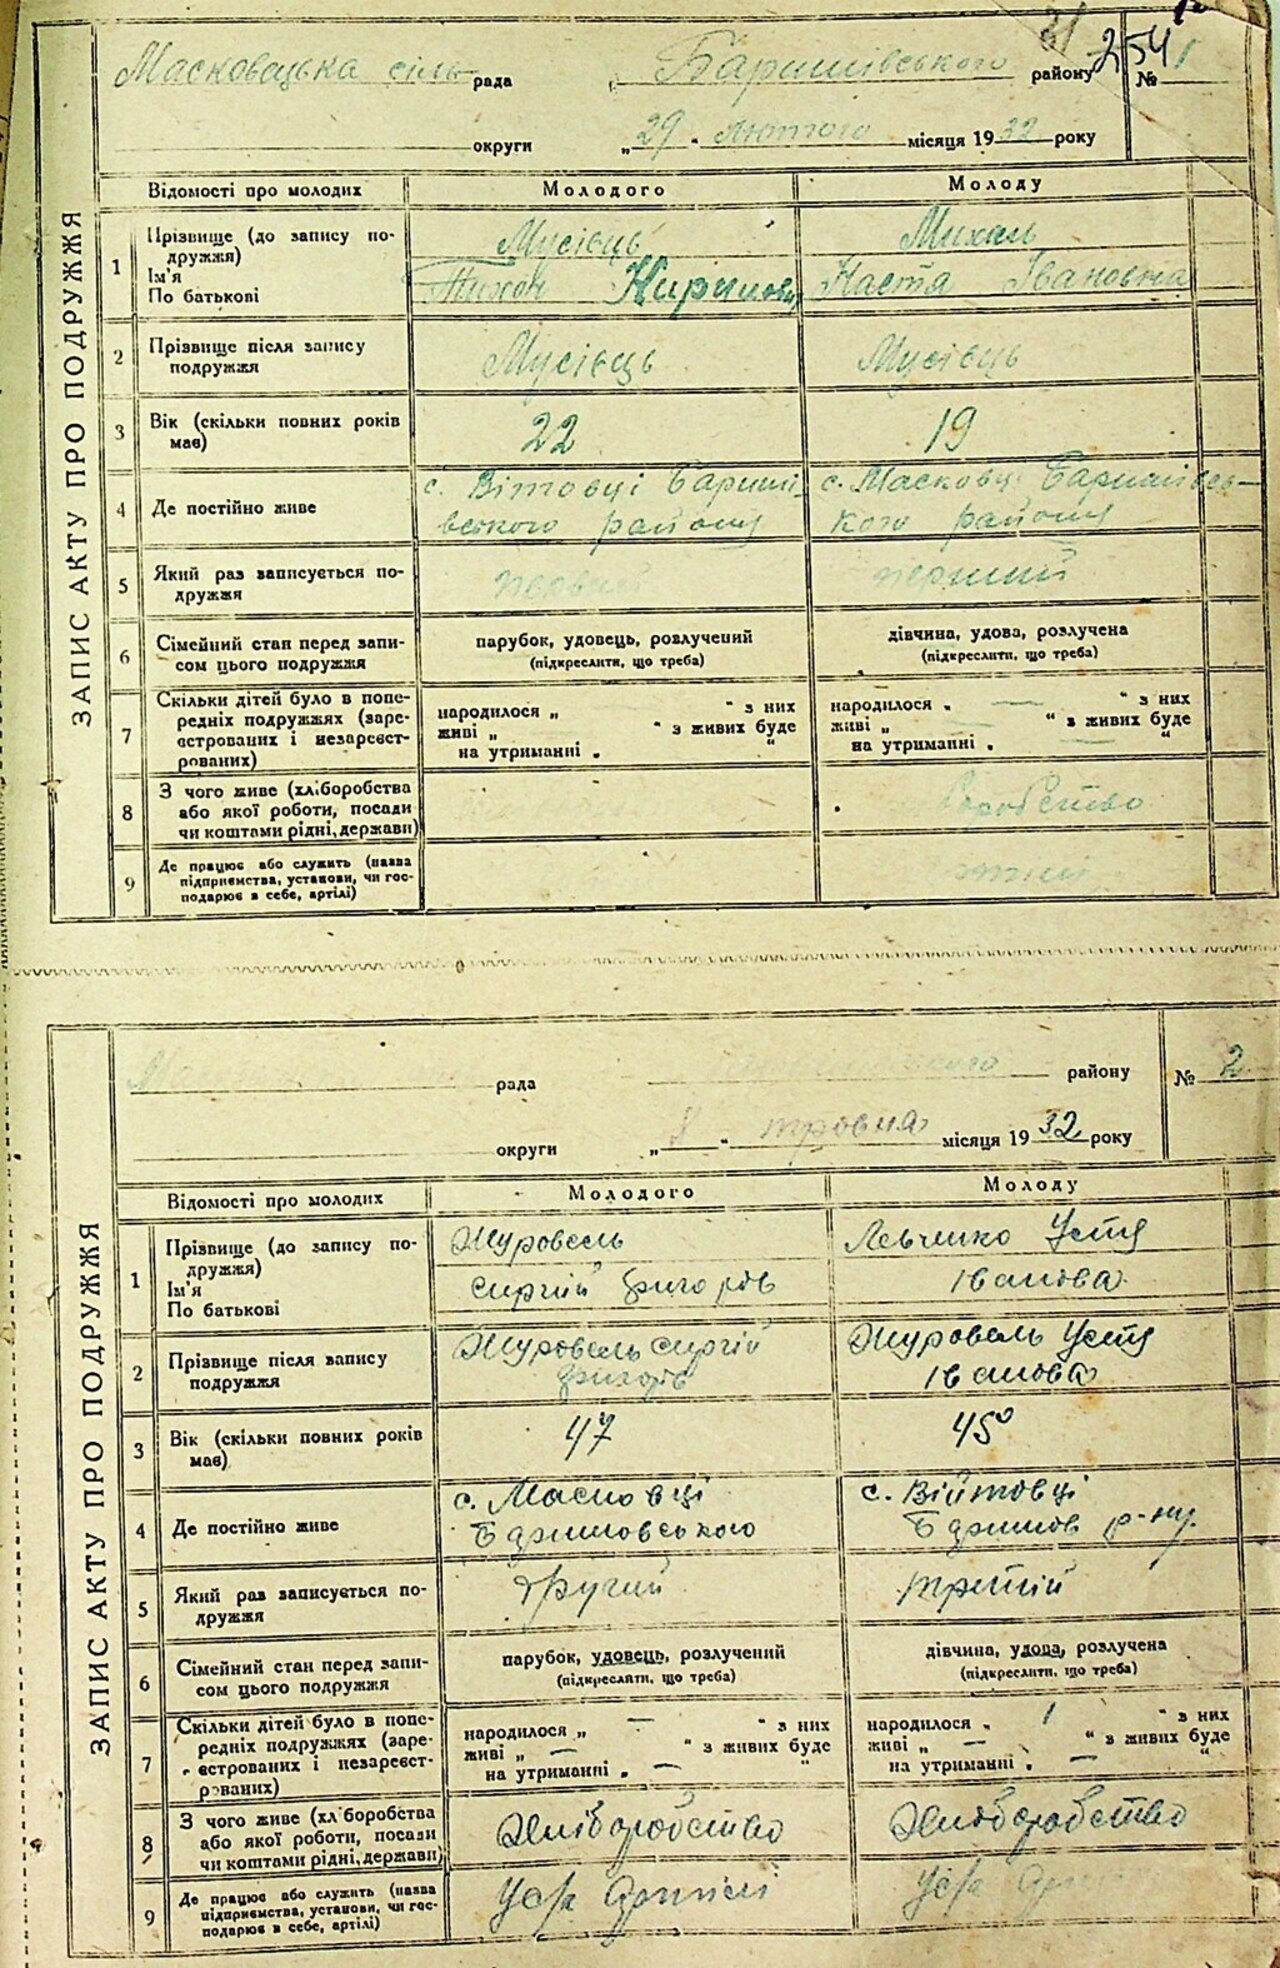 31 254
Масковецька сіль рада Баришівського району № 1
округи „29“ лютого місяця 1932 року
ЗАПИС АКТУ ПРО ПОДРУЖЖЯ
Відомості про молодих Молодого Молоду
1 Прізвище (до запису по- Мусієць Михаль
дружжя)
Ім'я Тихон Настя Івановна
По батькові
2 Прізвище після запису Мусієць Мусієць
подружжя
3 Вік (скільки повних років 22 19
має)
4 Де постійно живе с. Вітовці Бариші- с. Масковці Баришівсь-
вського району кого району
5 Який раз записується по- первий перший
дружжя
6 Сімейний стан перед запи- парубок, удовець, розлучений дівчина, удова, розлучена
сом цього подружжя (підкреслити, що треба) (підкреслити, що треба)
7 Скільки дітей було в попе- народилося „ “ з них народилося „ — “ з них
редніх подружжях (заре- живі „ “ з живих буде живі „ — “ з живих буде
єстрованих і незареєст- на утриманні „ “ на утриманні „ — “
рованих)
8 З чого живе (хліборобства
або якої роботи, посади
чи коштами рідні, держави)
9 Де працює або служить (назва
підприємства, установи, чи гос-
подарює в себе, артілі)
рада району № 2
округи „8“ травня місяця 1932 року
ЗАПИС АКТУ ПРО ПОДРУЖЖЯ
Відомості про молодих Молодого Молоду
1 Прізвище (до запису по- Журовель Левченко Устя
дружжя)
Ім'я Сиргій Григоров Іванова
По батькові
2 Прізвище після запису Журовель Сиргій Журовель Устя
подружжя Григоров Іванова
3 Вік (скільки повних років 47 45
має)
4 Де постійно живе с. Масковці с. Війтовці
Баришовського Баришов р-ну.
5 Який раз записується по- другий третій
дружжя
6 Сімейний стан перед запи- парубок, удовець, розлучений дівчина, удова, розлучена
сом цього подружжя (підкреслити, що треба) (підкреслити, що треба)
7 Скільки дітей було в попе- народилося „ — “ з них народилося „ 1 “ з них
редніх подружжях (заре- живі „ — “ з живих буде живі „ — “ з живих буде
єстрованих і незареєст- на утриманні „ — “ на утриманні „ — “
рованих)
8 З чого живе (хліборобства Хліборобство Хліборобство
або якої роботи, посади
чи коштами рідні, держави)
9 Де працює або служить (назва У с/г Артілі У с/г
підприємства, установи, чи гос-
подарює в себе, артілі)